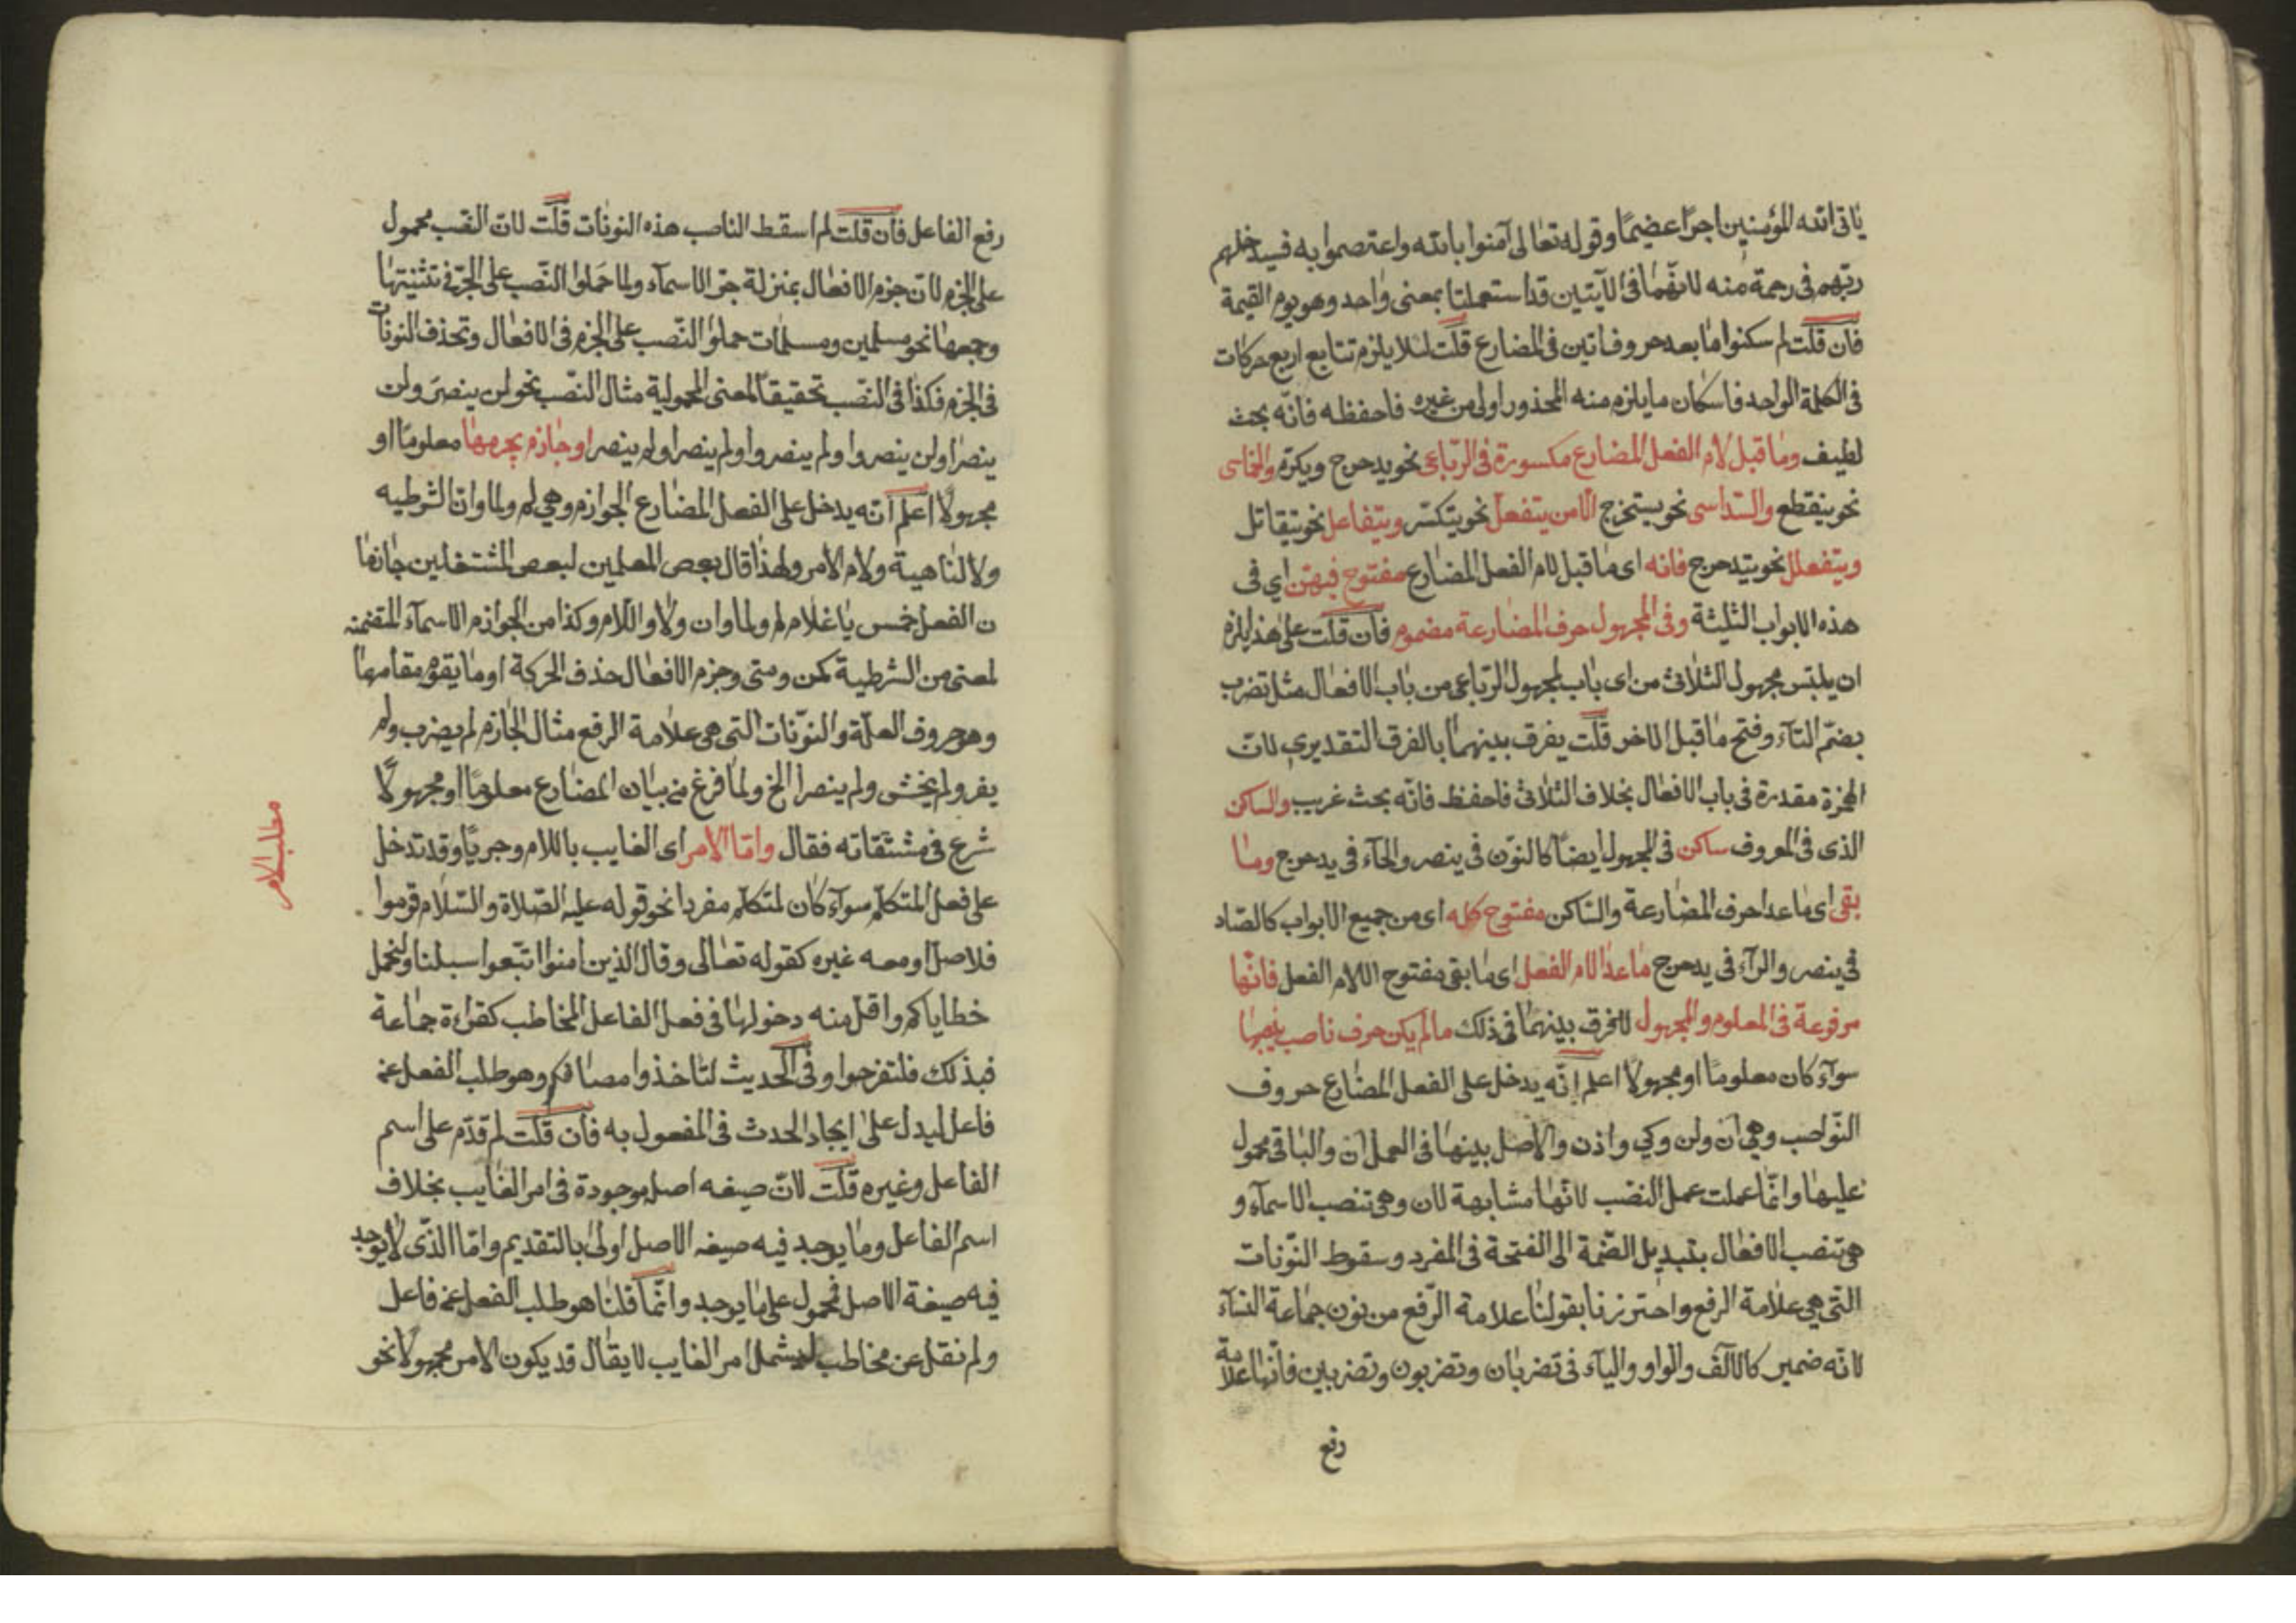 ياتى الله المؤمنين اجرًا عضيمًا وقوله تعالى آمنوا بالله واعتصموا به فسيدخلهم
ربّهم فى رحمة منه لانّهما فى الآيتين قد استعملتا بمعنى واحد وهو يوم القيمة
فان قلت لم سكنوا ما بعد حروف اتين فى المضارع قلت لئلا يلزم تتابع اربع حركات
فى الكلمة الواحد فاسكان ما يلزم منه المحذور اولى من غيره فاحفظه فانّه بحث
لطيف وما قبل لام الفعل المضارع مكسورة فى الرّباعى نحو يدحرج ويكرم والخماسى
نحو ينقطع والسّداسى نحو يستخرج الّا من يتفعل نحو يتكسّر ويتفاعل نحو يتقاتل
ويتفعلل نحو يتدحرج فانه اى ما قبل لام الفعل المضارع مفتوح فيهنّ اي فى
هذه الابواب الثلثة وفى المجهول حرف المضارعة مضموم فان قلت على هذا يلزم
ان يلتبس مجهول الثلاثى من اى باب لمجهول الرّباعى من باب الافعال مثل تضرب
بضمّ التآء وفتح ما قبل الاخر قلت يفرق بينهما بالفرق التقديري لانّ
الهمزة مقدرة فى باب الافعال بخلاف الثلاثى فاحفظ فانّه بحث غريب والساكن
الذى فى المعروف ساكن فى المجهول ايضًا كالنوّن فى ينصر والحآء فى يدحرج وما
بقى اى ما عدا حرف المضارعة والساكن مفتوح كله اى من جميع الابواب كالصّاد
فى ينصر والرآء فى يدحرج ما عدا لام الفعل اى ما بقى مفتوح اللام الفعل فانّها
مرفوعة فى المعلوم والمجهول للافرق بينهما فى ذلك ما لم يكن حرف ناصب ينصبها
سوآء كان معلومًا او مجهولًا اعلم انّه يدخل على الفعل المضارع حروف
النّواصب وهي ان ولن وكي واذن والاصل بينها فى العمل ان والباقى محمول
عليها وانّما عملت عمل النصّب لانّها مشابهة لان وهى تنصب الاسمآء و
هى تنصب الافعال بتبديل الضمّة الى الفتحة فى المفرد وسقوط النوّنات
التى هي علامة الرفع واحترزنا بقولنا علامة الرّفع من نون جماعة النسآء
لانّه ضمير كالالف والواو واليآء فى تضربان وتضربون وتضربين فانّها علامة
رفع
رفع الفاعل فان قلت لم اسقط الناصب هذه النونات قلت لانّ النصّب محمول
على الجزم لانّ جزم الافعال بمنزلة جرّ الاسمآء ولما حملوا النّصب على الجرّ فى تثنيتها
وجمعها نحو مسلمين ومسلمات حملوا النّصب على الجزم فى الافعال وتحذف النونات
فى الجزم فكذا فى النّصب تحقيقًا لمعنى المحمولية مثال النّصب نحو لن ينصرَ ولن
ينصرا ولن ينصروا ولم ينصروا ولم ينصرا ولم ينصرا او جازم يجزمها معلومًا او
مجهولًا اعلم انّه يدخل على الفعل المضارع الجوازم وهي لم ولما وان الشرطيه
ولا الناهية ولام الامر ولهذا قال بعض المعلمين لبعض المشتغلين جازما
ن الفعل خمس يا غلام لم ولما وان ولا واللام وكذا من الجوازم الاسمآء المتضمنه
لمعنى من الشرطية كمن ومتى وجزم الافعال حذف الحركة او ما يقوم مقامها
وهو حروف العلّة والنوّنات التى هى علامة الرفع مثال الجازم لم يضرب ولم
يفر ولم يخش ولم ينصرا الخ ولما فرغ من بيان المضارع معلومًا او مجهولًا
شرع فى مشتقاته فقال وامّا الامر اى الغايب باللام وجريًا وقد تدخل
على فعل المتكلّم سوآء كان لمتكلّم مفردا نحو قوله عليه الصّلاة والسّلام قوموا
فلاصل او معه غيره كقوله تعالى وقال الذين امنوا اتبّعوا سبلنا ولنحمل
خطاياكم واقل منه دخولها فى فعل الفاعل المخاطب كقراءة جماعة
فبذلك فلتفرحوا وفى الحديث لتاخذوا مصافكم وهو طلب الفعل عن
فاعل ليدل على ايجاد الحدث فى المفعول به فان قلت لم قدّم على اسم
الفاعل وغيره قلت لانّ صيغه اصل موجودة فى امر الغايب بخلاف
اسم الفاعل وما يوجد فيه صيغه الاصل اولى بالتقديم وامّا الذّى لا يوجد
فيه صيغة الاصل فمحمول على ما يوجد وانّما قلنا هو طلب الفعل عن فاعل
ولم نقل عن مخاطب ليشمل امر الغايب لا يقال قد يكون الامر مجهولًا نحو
مطلب الامر